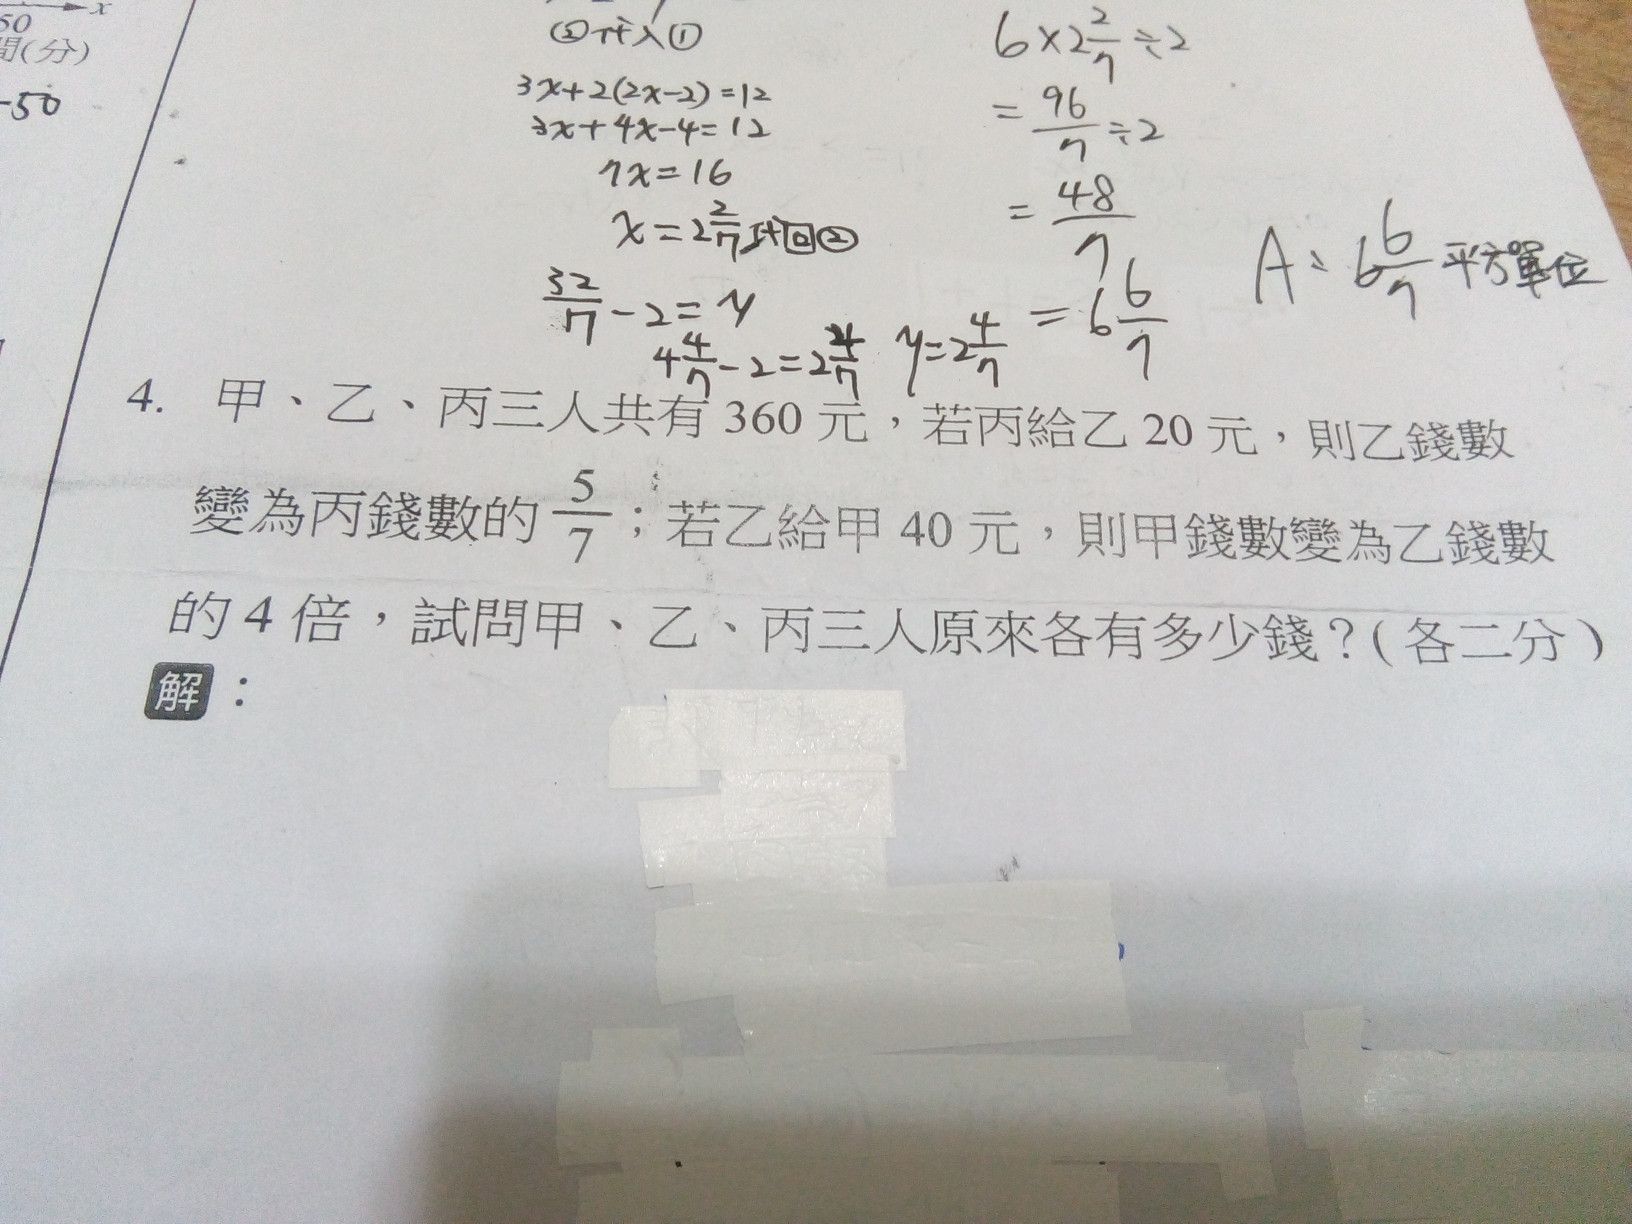 x
50
間(分)
-50
②代入①
3x+2(2x-2)=12
3x+4x-4=12
7x=16
x=2 2/7 代回②
32/7-2=y
4 4/7-2=2 4/7 y=2 4/7
6×2 2/7÷2
=96/7÷2
=48/7
=6 6/7
A:6 6/7平方單位
4. 甲、乙、丙三人共有 360 元，若丙給乙 20 元，則乙錢數
變為丙錢數的 5/7；若乙給甲 40 元，則甲錢數變為乙錢數
的 4 倍，試問甲、乙、丙三人原來各有多少錢？(各二分)
解：